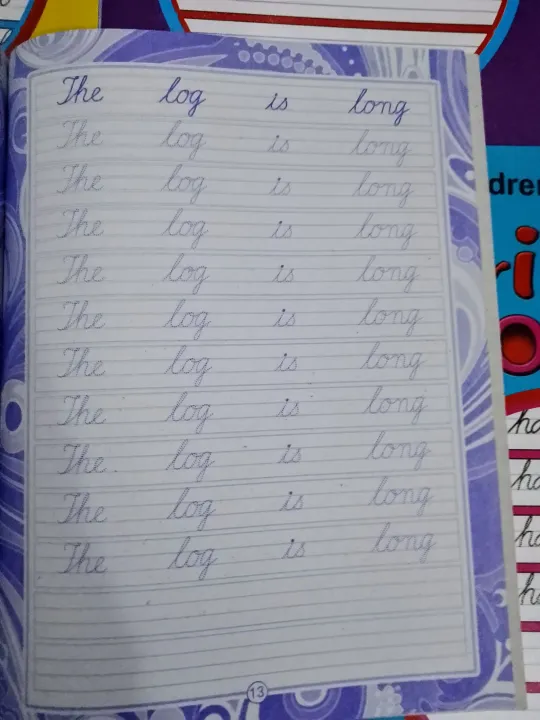 The log is long
The log is long
The log is long
The log is long
The log is long
The log is long
The log is long
The log is long
The log is long
The log is long
The log is long
13